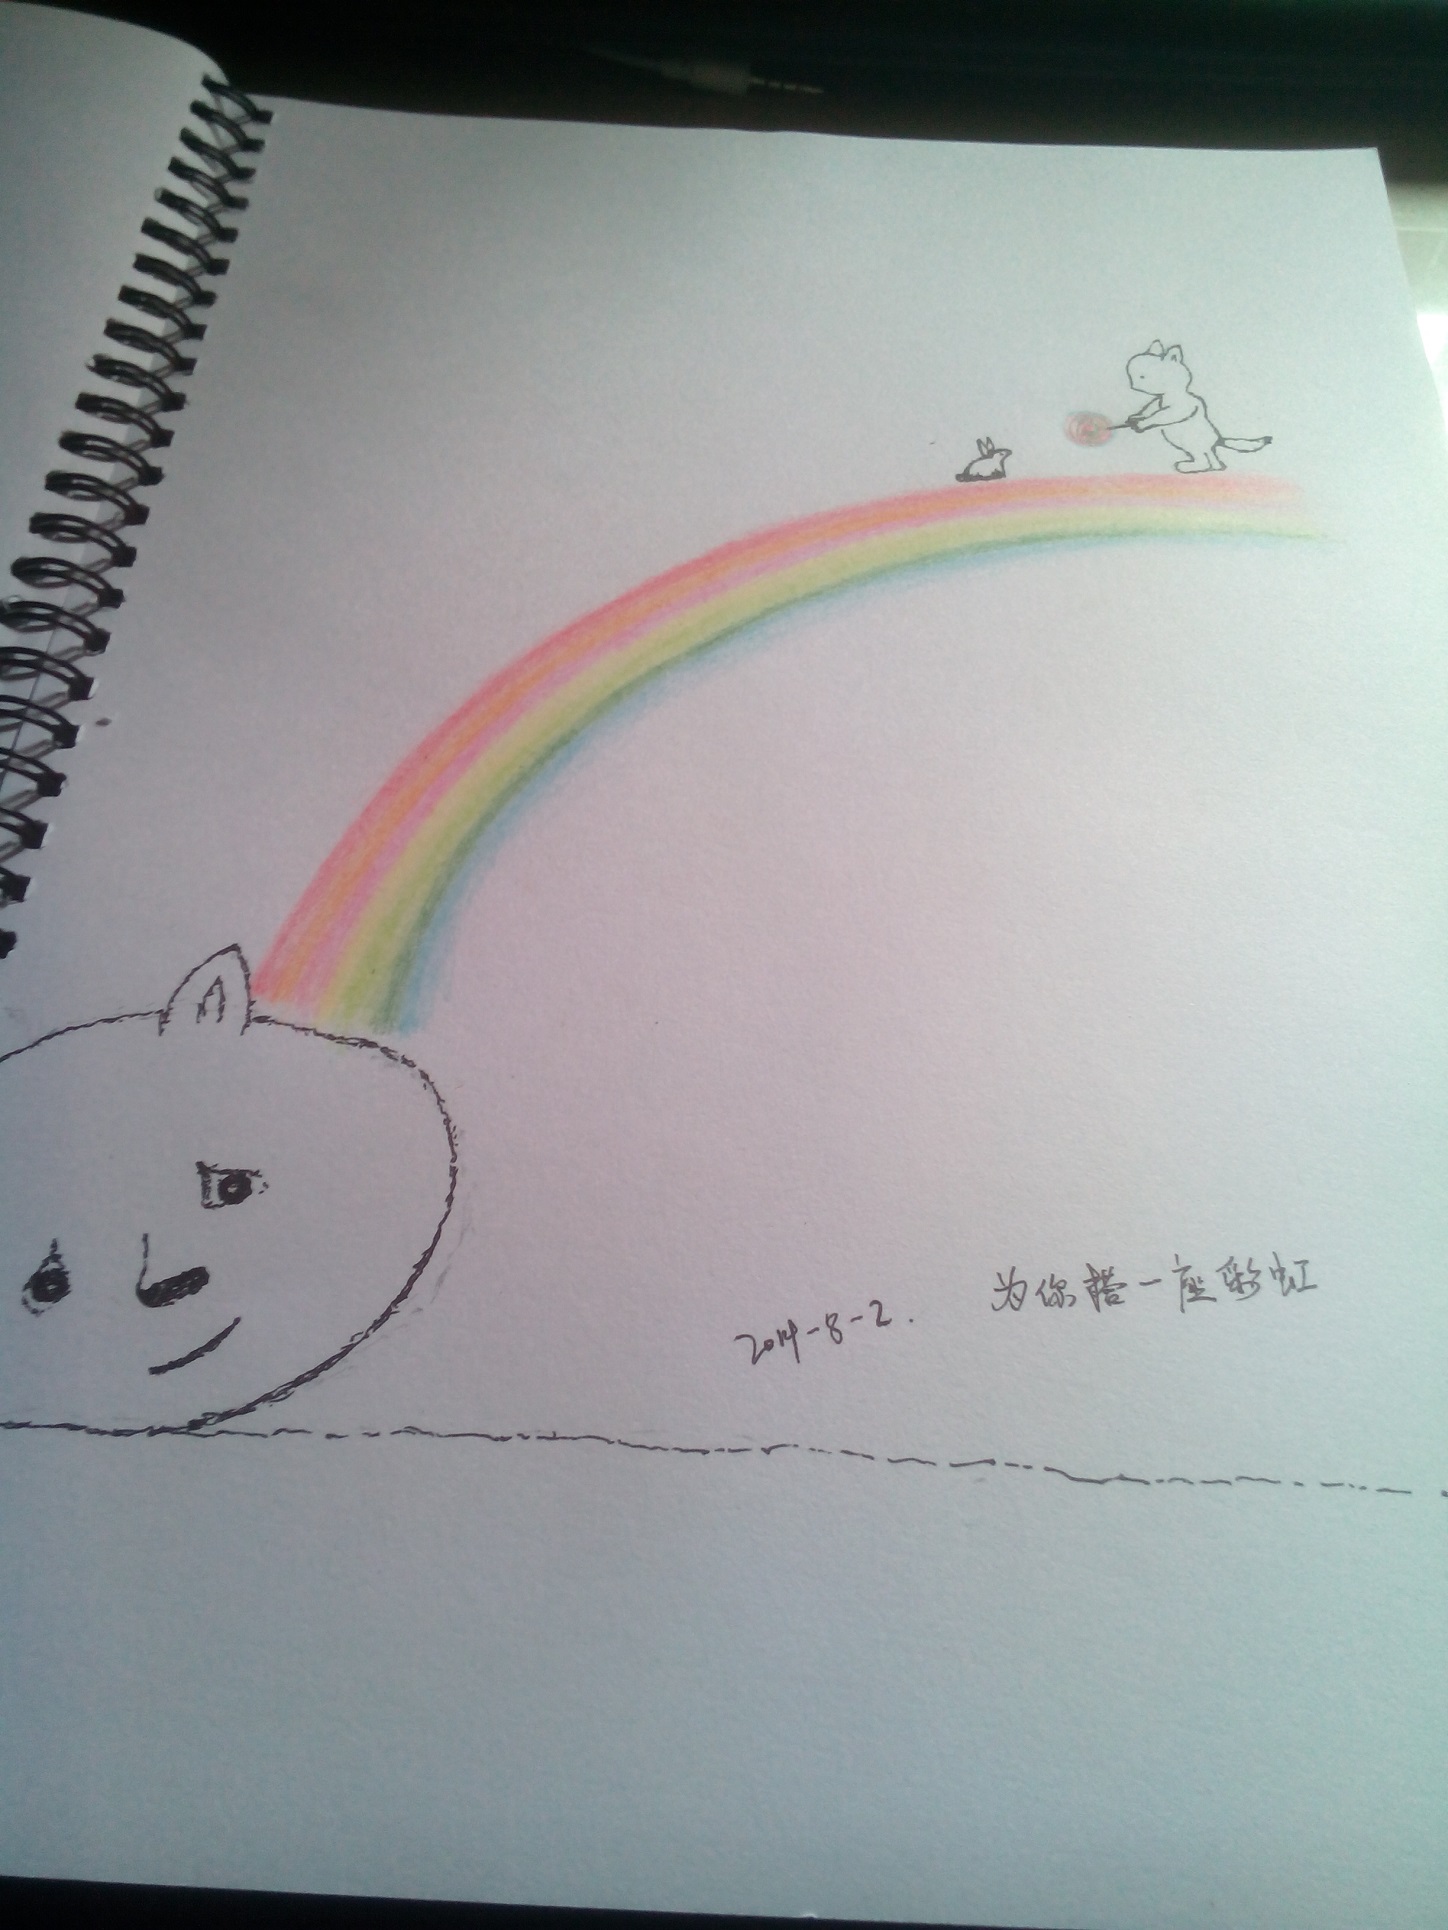 2014-8-2. 为你搭一座彩虹